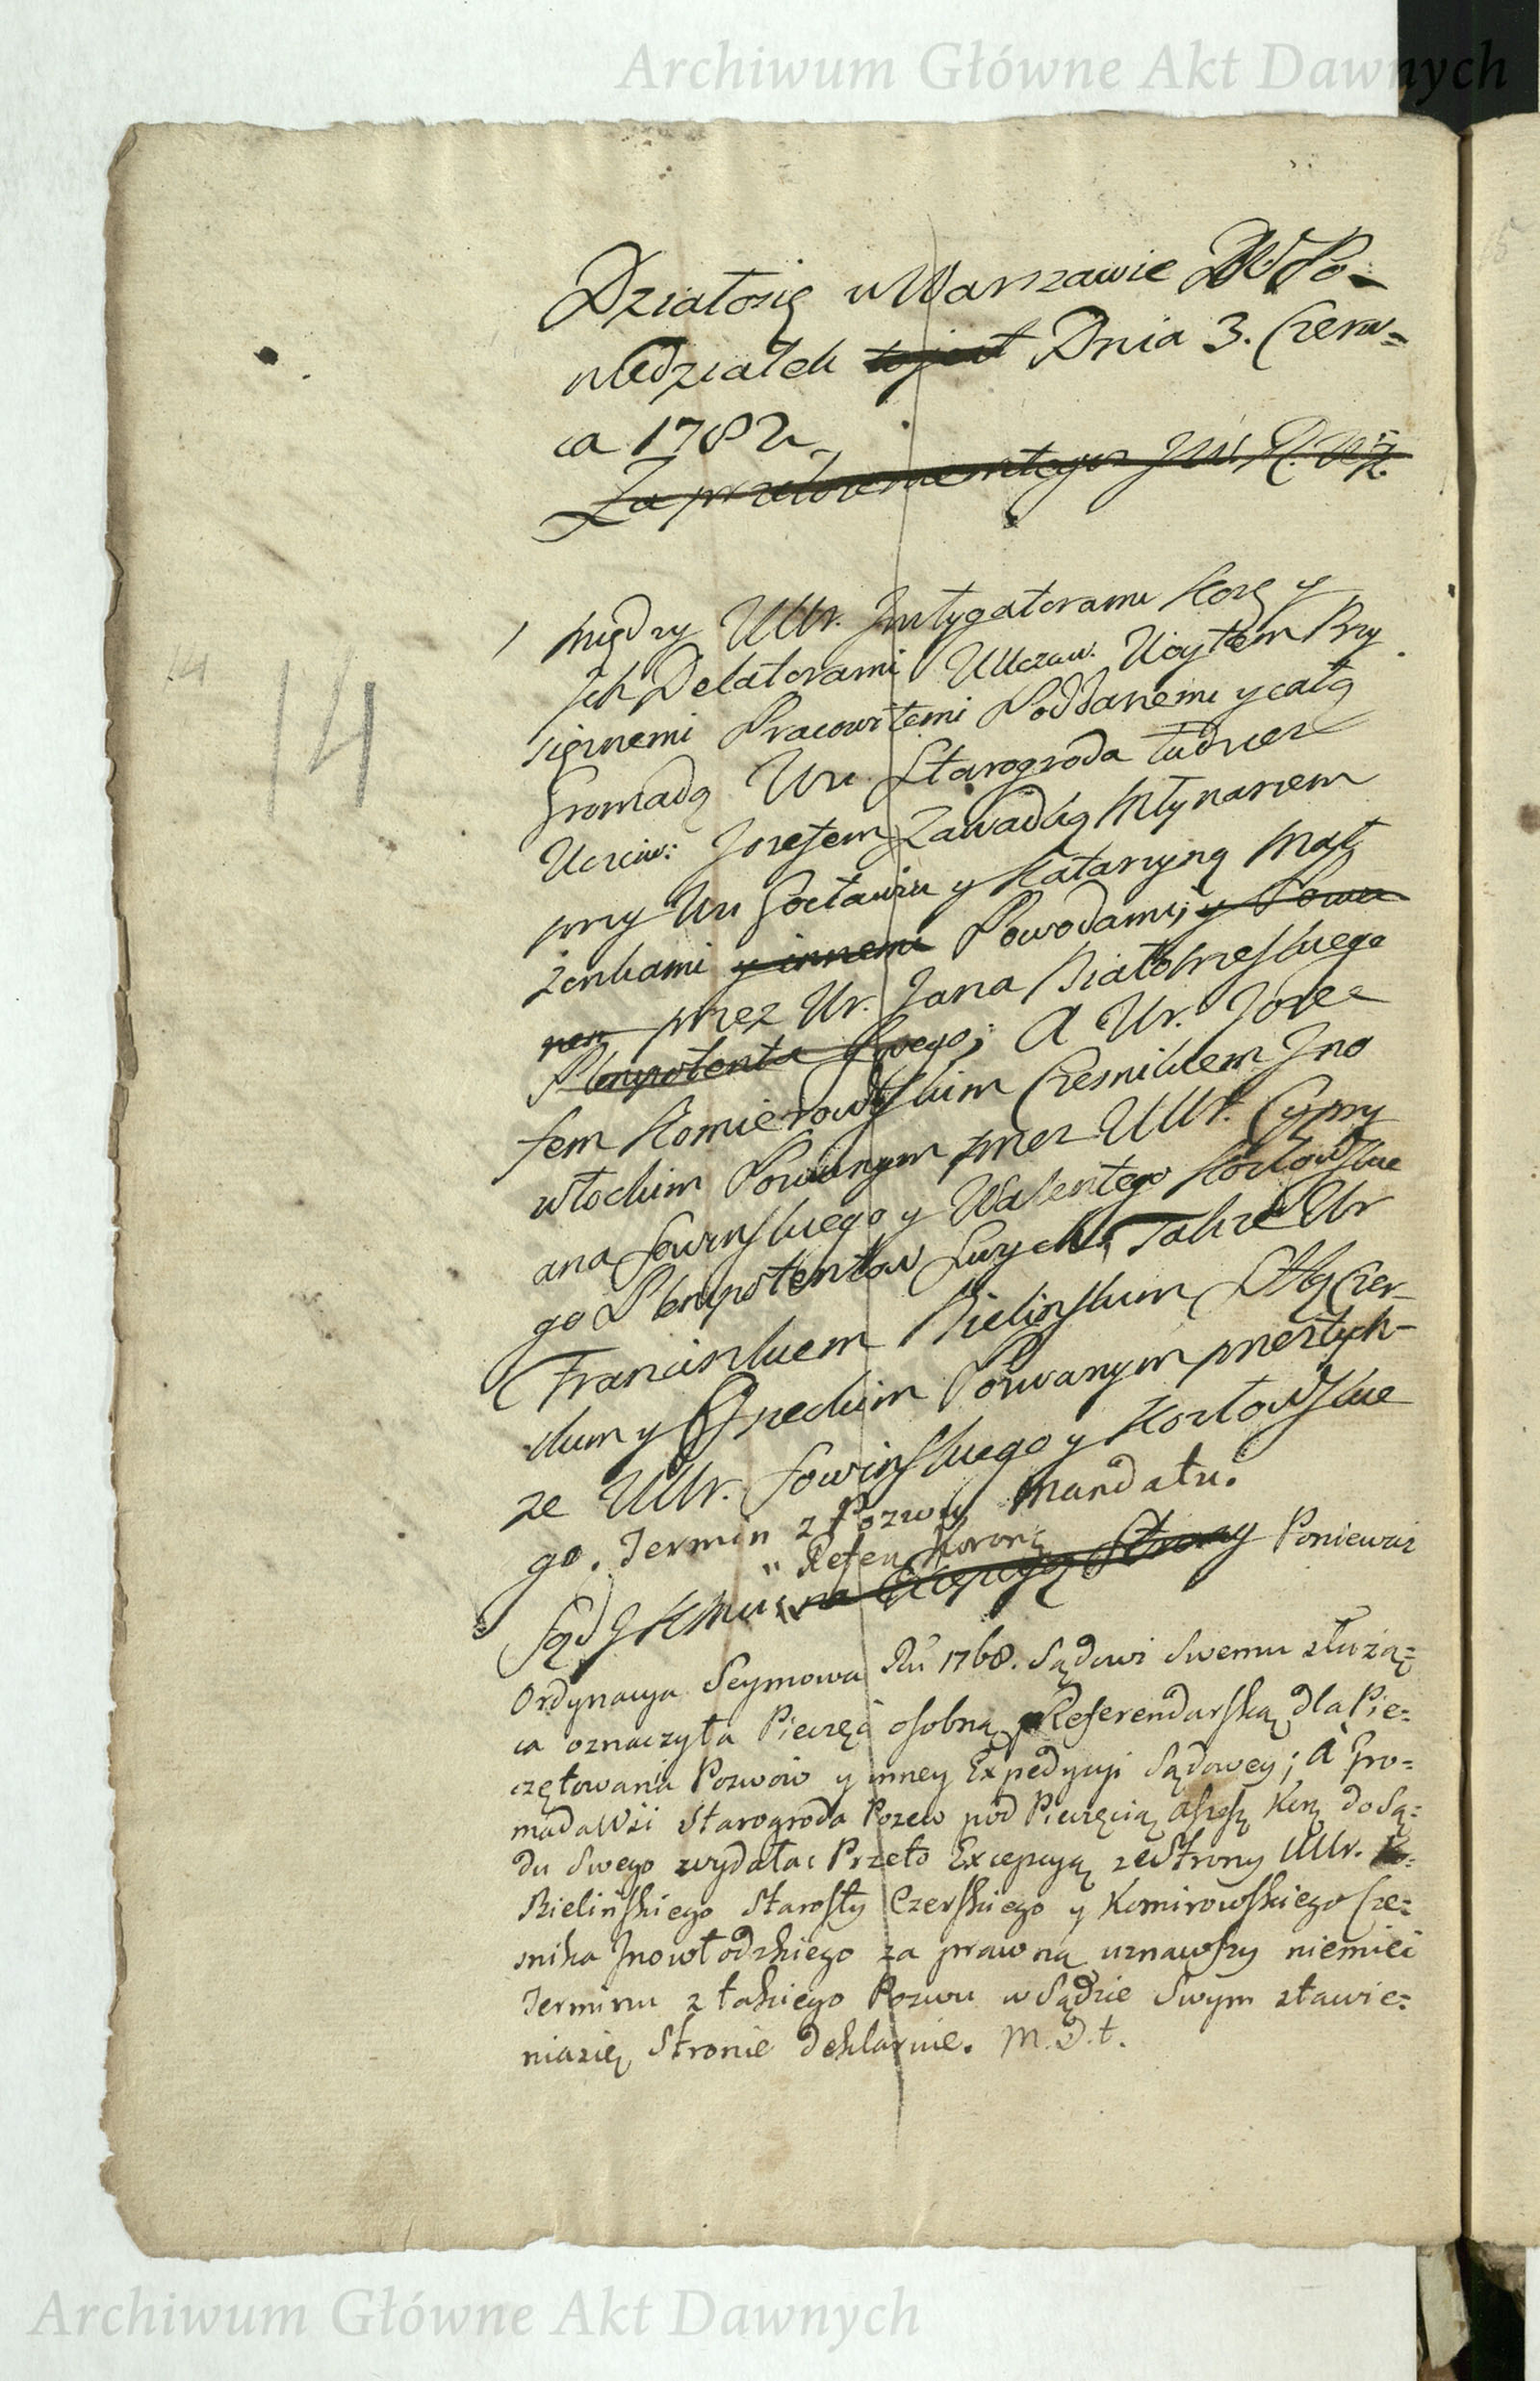 Archiwum Główne Akt Dawnych
Działosię w Warszawie W Po-
niedziałek tojest Dnia 3. Czerw=
ca 1782
14
14
1 Między UUr. Instygatorami Kor. y
Ich Delatorami UUczciw. Woytem Przy
siężnemi Pracowitemi Poddanemi y całą
Gromadą Wsi Starogroda tudzież
Uczciw: Jozefem Zawadką Młynarzem
przy Wsi Gocławiu y Katarzyną Mał
żonkami y innemi Powodami; y Powo
przez Ur. Jana Białobrzeskiego
Plenipotenta Swego; A Ur. Joze=
fem Komierowskim Cześnikiem Ino
włockim Pozwanym przez UUr. Cypry
ana Sowińskiego y Walentego Kozłowskie
go Plenipotentow Swych, Także Ur
Franciszkiem Bielińskim Sttą Czer-
skim y Pozwanym przeztych-
że UUr. Sowińskiego y Kozłowskie
go. Termin z Pozwu Mandatu.
" Refen Koronę
Sąd JKMci na Strony Ponieważ
Ordynacya Seymowa Ru 1768. Sądowi Swemu służą=
ca oznaczyła Pieczęć osobną Referendarską dla Pie=
czętowania Pozwow y inney Expedycyi Sądowey; A Gro=
mada Wsi Starogroda Pozew pod Pieczęcią Kor. do Są=
du Swego wydała: Przeto Excepcyą ze Strony UUr.
Bielińskiego Starosty Czerskiego y Komirowskiego Cze=
śnika Inowłodzkiego za prawną uznawszy niemieć
Terminu z takiego Pozwu w Sądzie Swym stawie=
niasię Stronie deklaruie. M. D. t.
Archiwum Główne Akt Dawnych